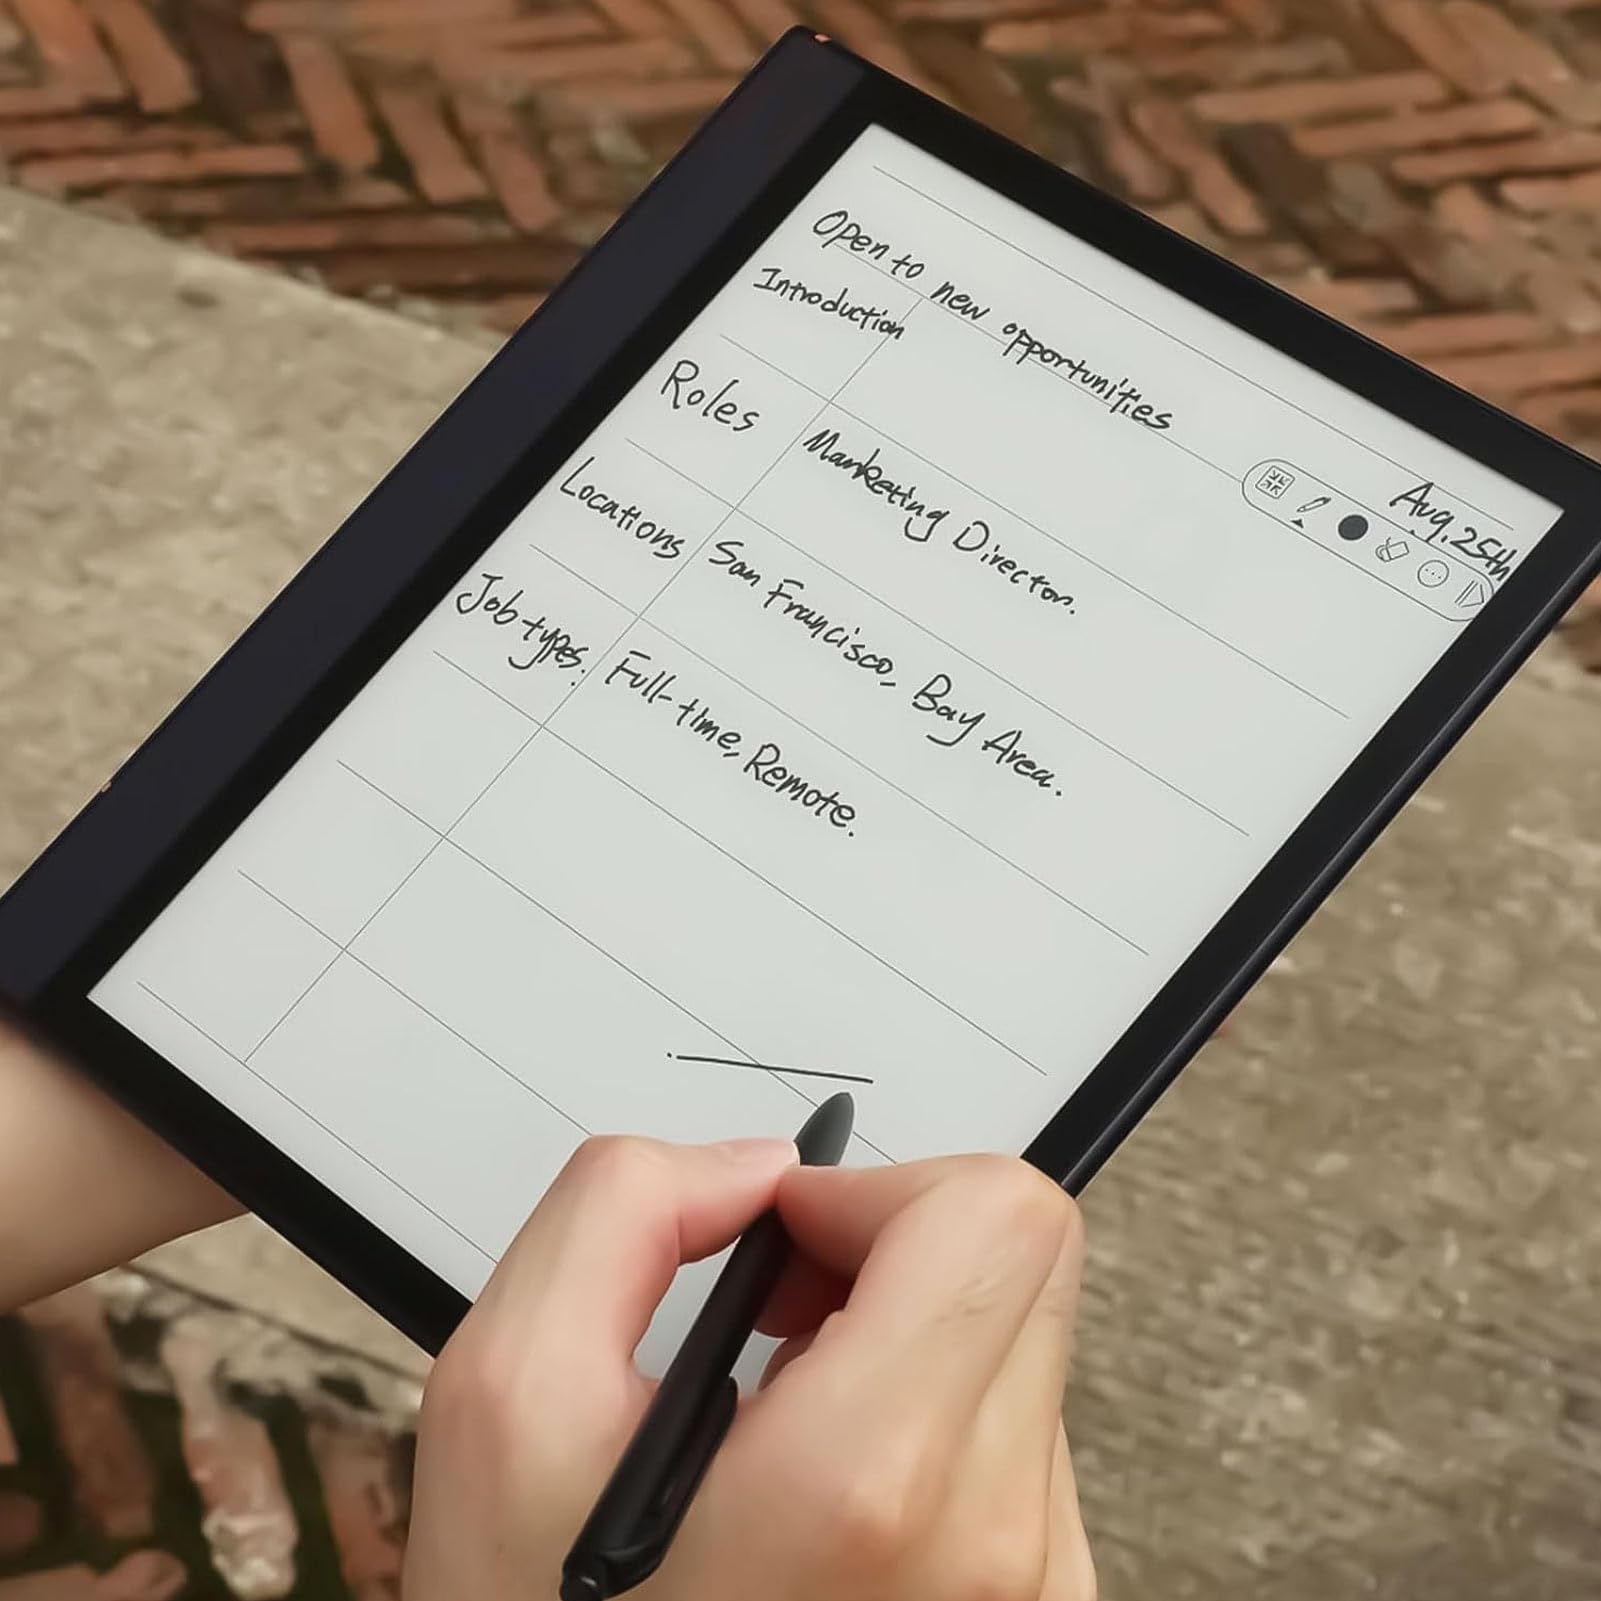 Open to new opportunities
Aug. 25th
Introduction
Roles Marketing Director.
Locations San Francisco, Bay Area.
Job types. Full-time, Remote.